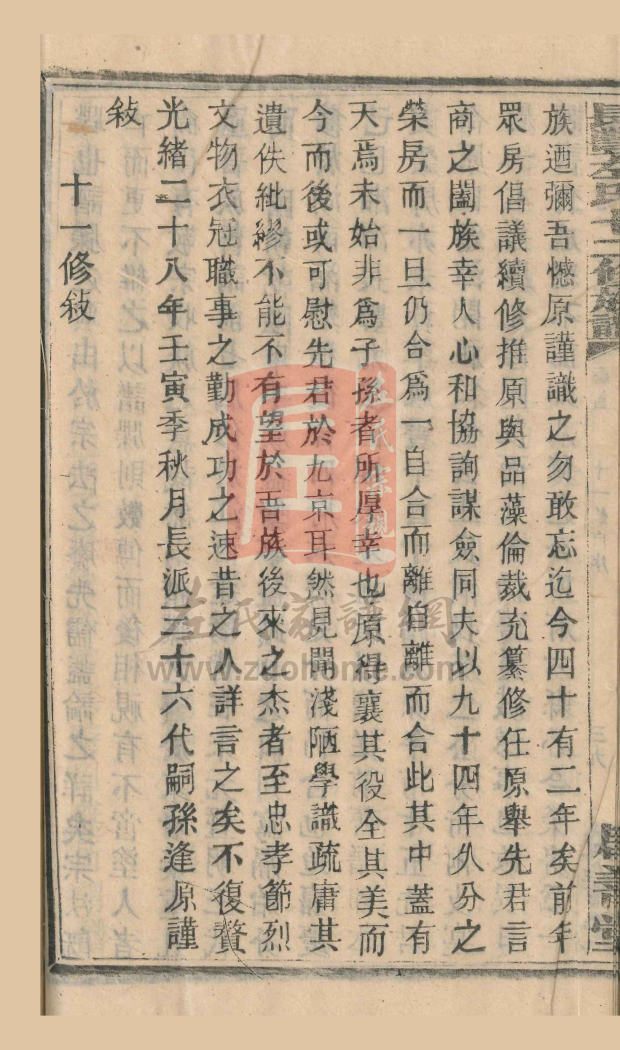 族迺彌吾憾原謹識之勿敢忘迄今四十有二年矣前年
眾房倡議續修推原與品藻倫裁充纂修任原舉先君言
商之闔族幸人心和協詢謀僉同夫以九十四年久分之
榮房而一旦仍合爲一自合而離自離而合此其中蓋有
天焉未始非爲子孫者所厚幸也原得襄其役全其美而
今而後或可慰先君於九京耳然見聞淺陋學識疏庸其
遺佚紕繆不能不有望於吾族後來之杰者至忠孝節烈
文物衣冠職事之勤成功之速昔之人詳言之矣不復贅
光緒二十八年壬寅季秋月長派三十六代嗣孫逢原謹
敍
十一修敍
左氏家譜網
www.zuohome.com